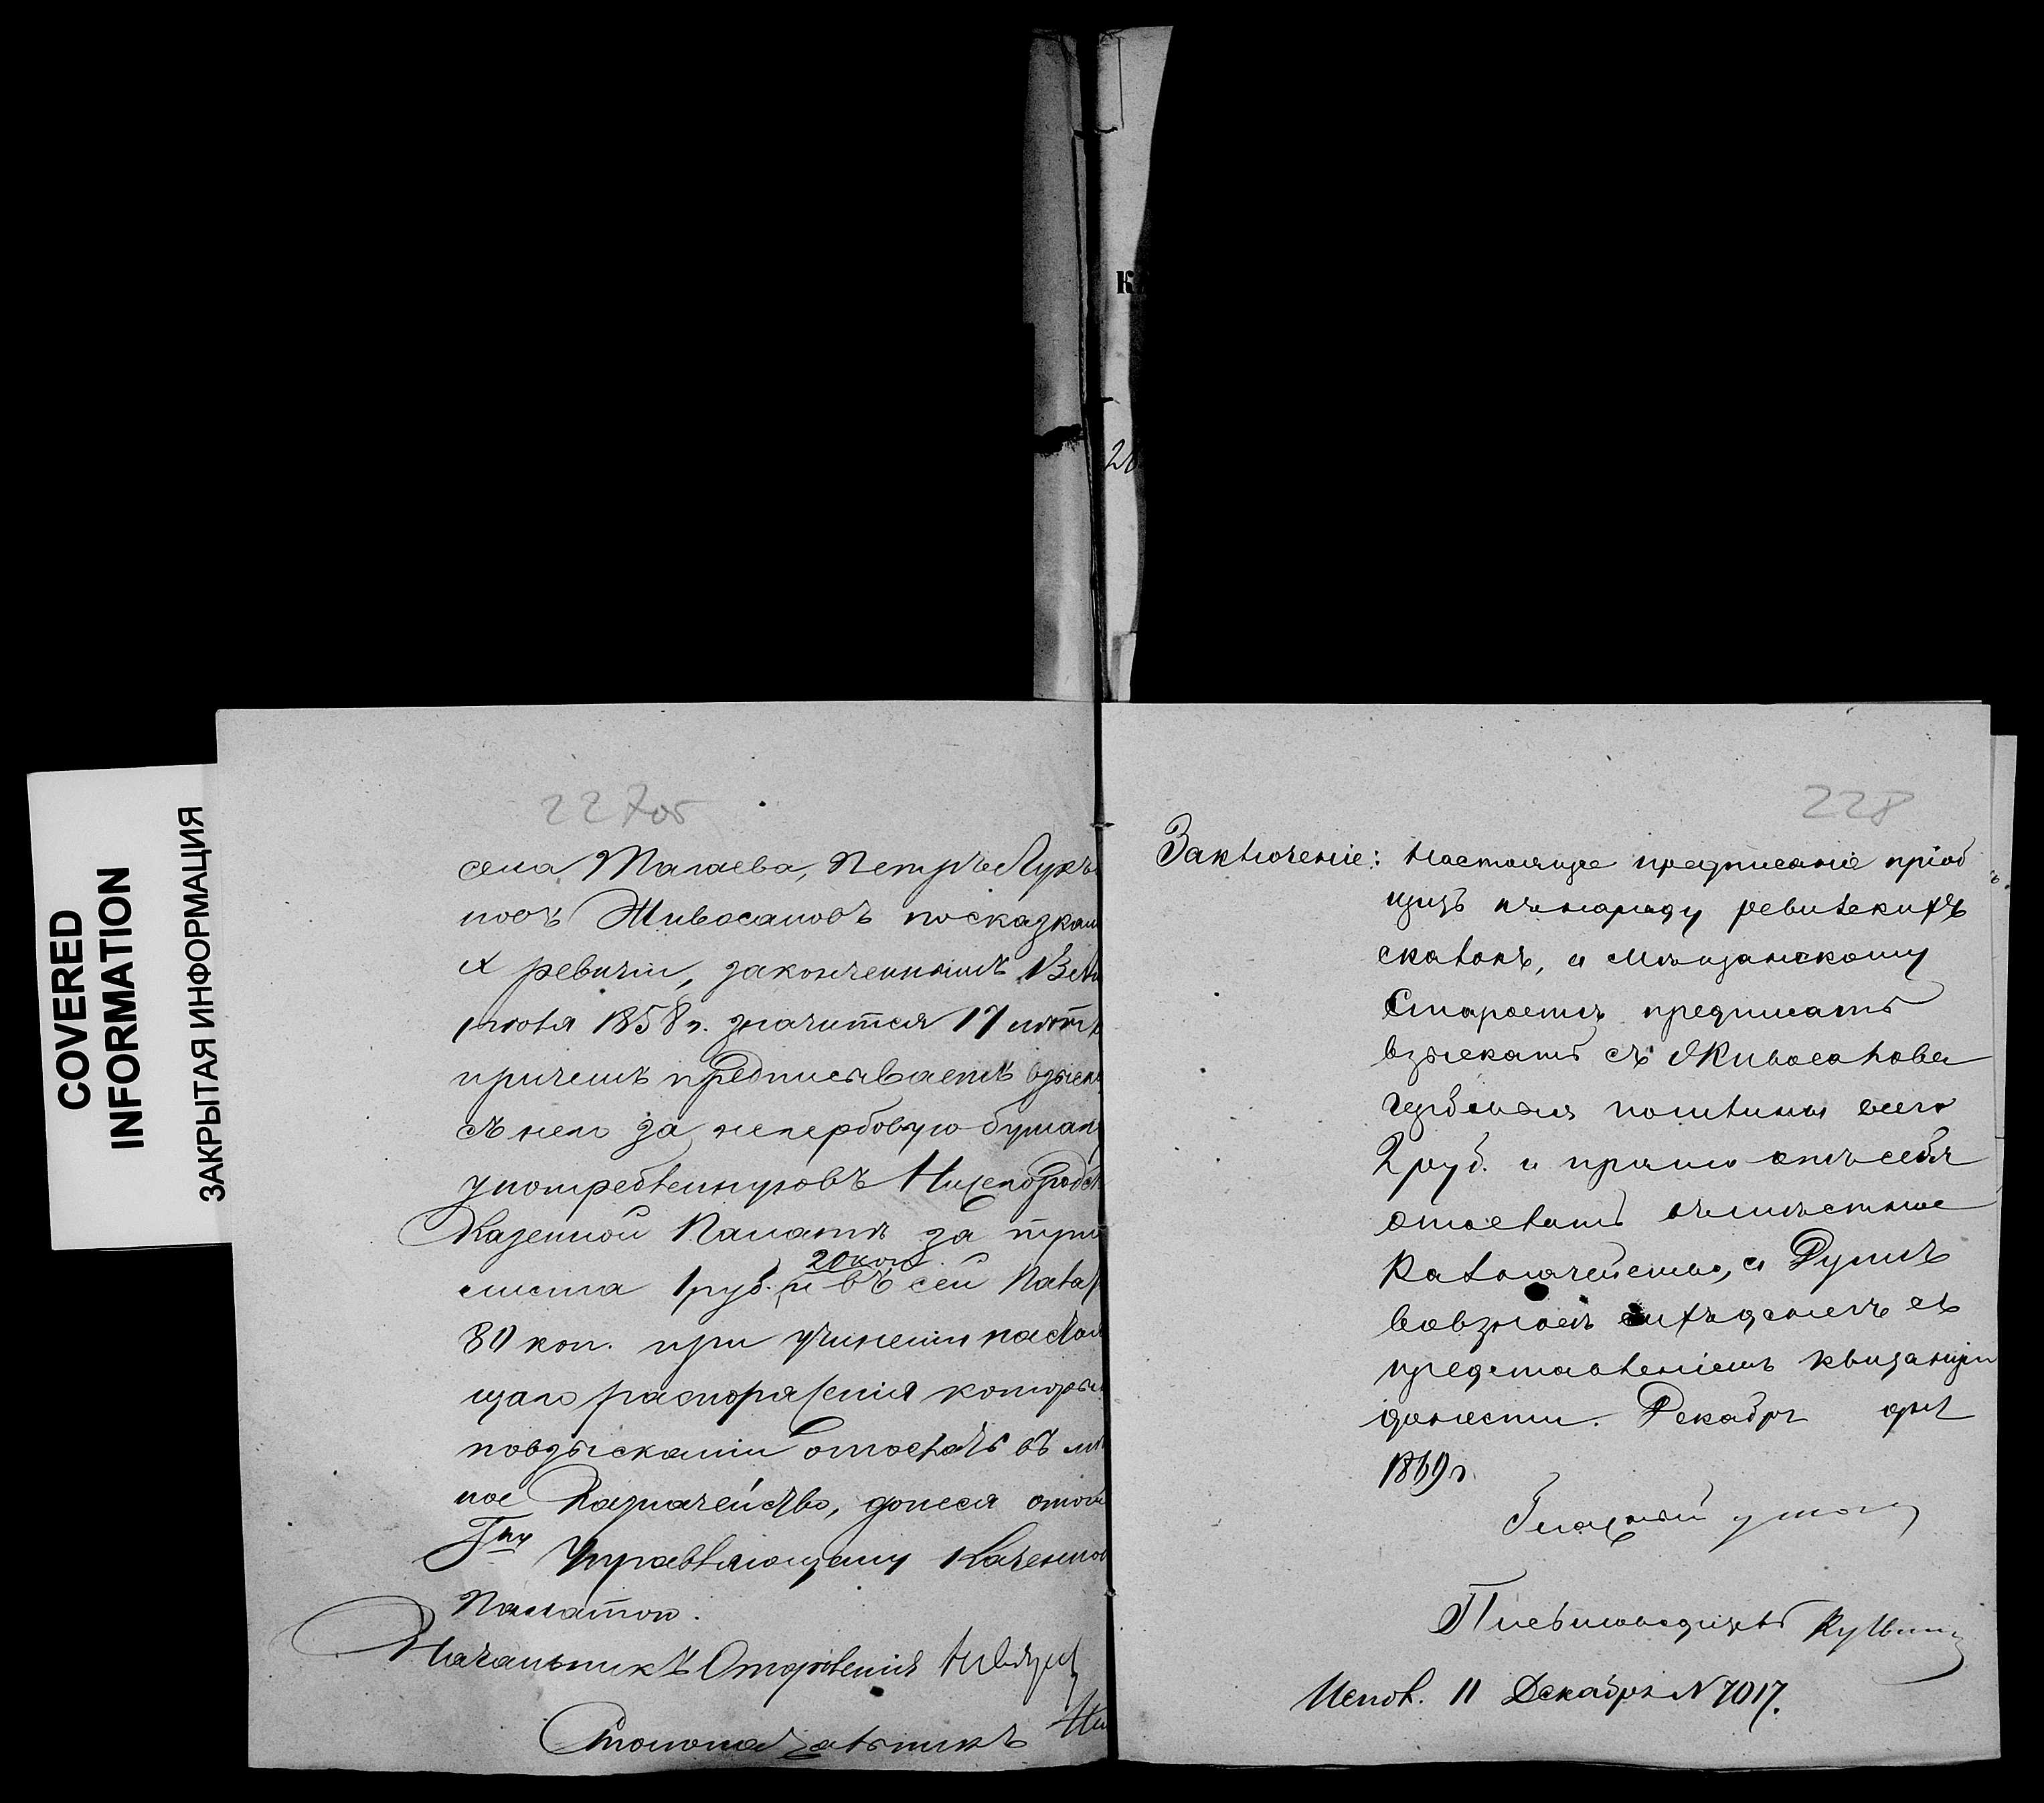 COVERED
INFORMATION
ЗАКРЫТАЯ ИНФОРМАЦИЯ
К
26
227об
села Талаева, Петръ Лукья
новъ Живосановъ по сказкам
X ревизіи, законченнымъ
іюля 1858 г. значится 17 лѣтъ
причемъ предписываетъ взыск
съ него за негербовую бумагу
употребленную въ Нижегородск
Казенной Палатѣ за три
листа 1 руб. 20 коп. и въ сей Палат
80 коп. при учиненіи настоя
щаго распоряженія которыя
по взысканіи отослать въ мѣст
ное Казначейство, донеся о том
Гну Управляющему Казенной
Палатою.
Начальникъ Отдѣленія
Столоначальникъ
228
Заключеніе: Настоящее предписаніе пріоб
щить къ наряду ревизскихъ
сказокъ, а Мѣщанскому
Старостѣ предписать
взыскать съ Живосанова
гербовыя пошлины всего
2 руб. и прямо отъ себя
отослать въ мѣстное
Казначейство, а Думѣ
о взносѣ ихъ съ
представленіемъ квитанціи
донести. Декабря дня
1869 г.
Письмоводитель
Испол. 11 Декабря N 7017.